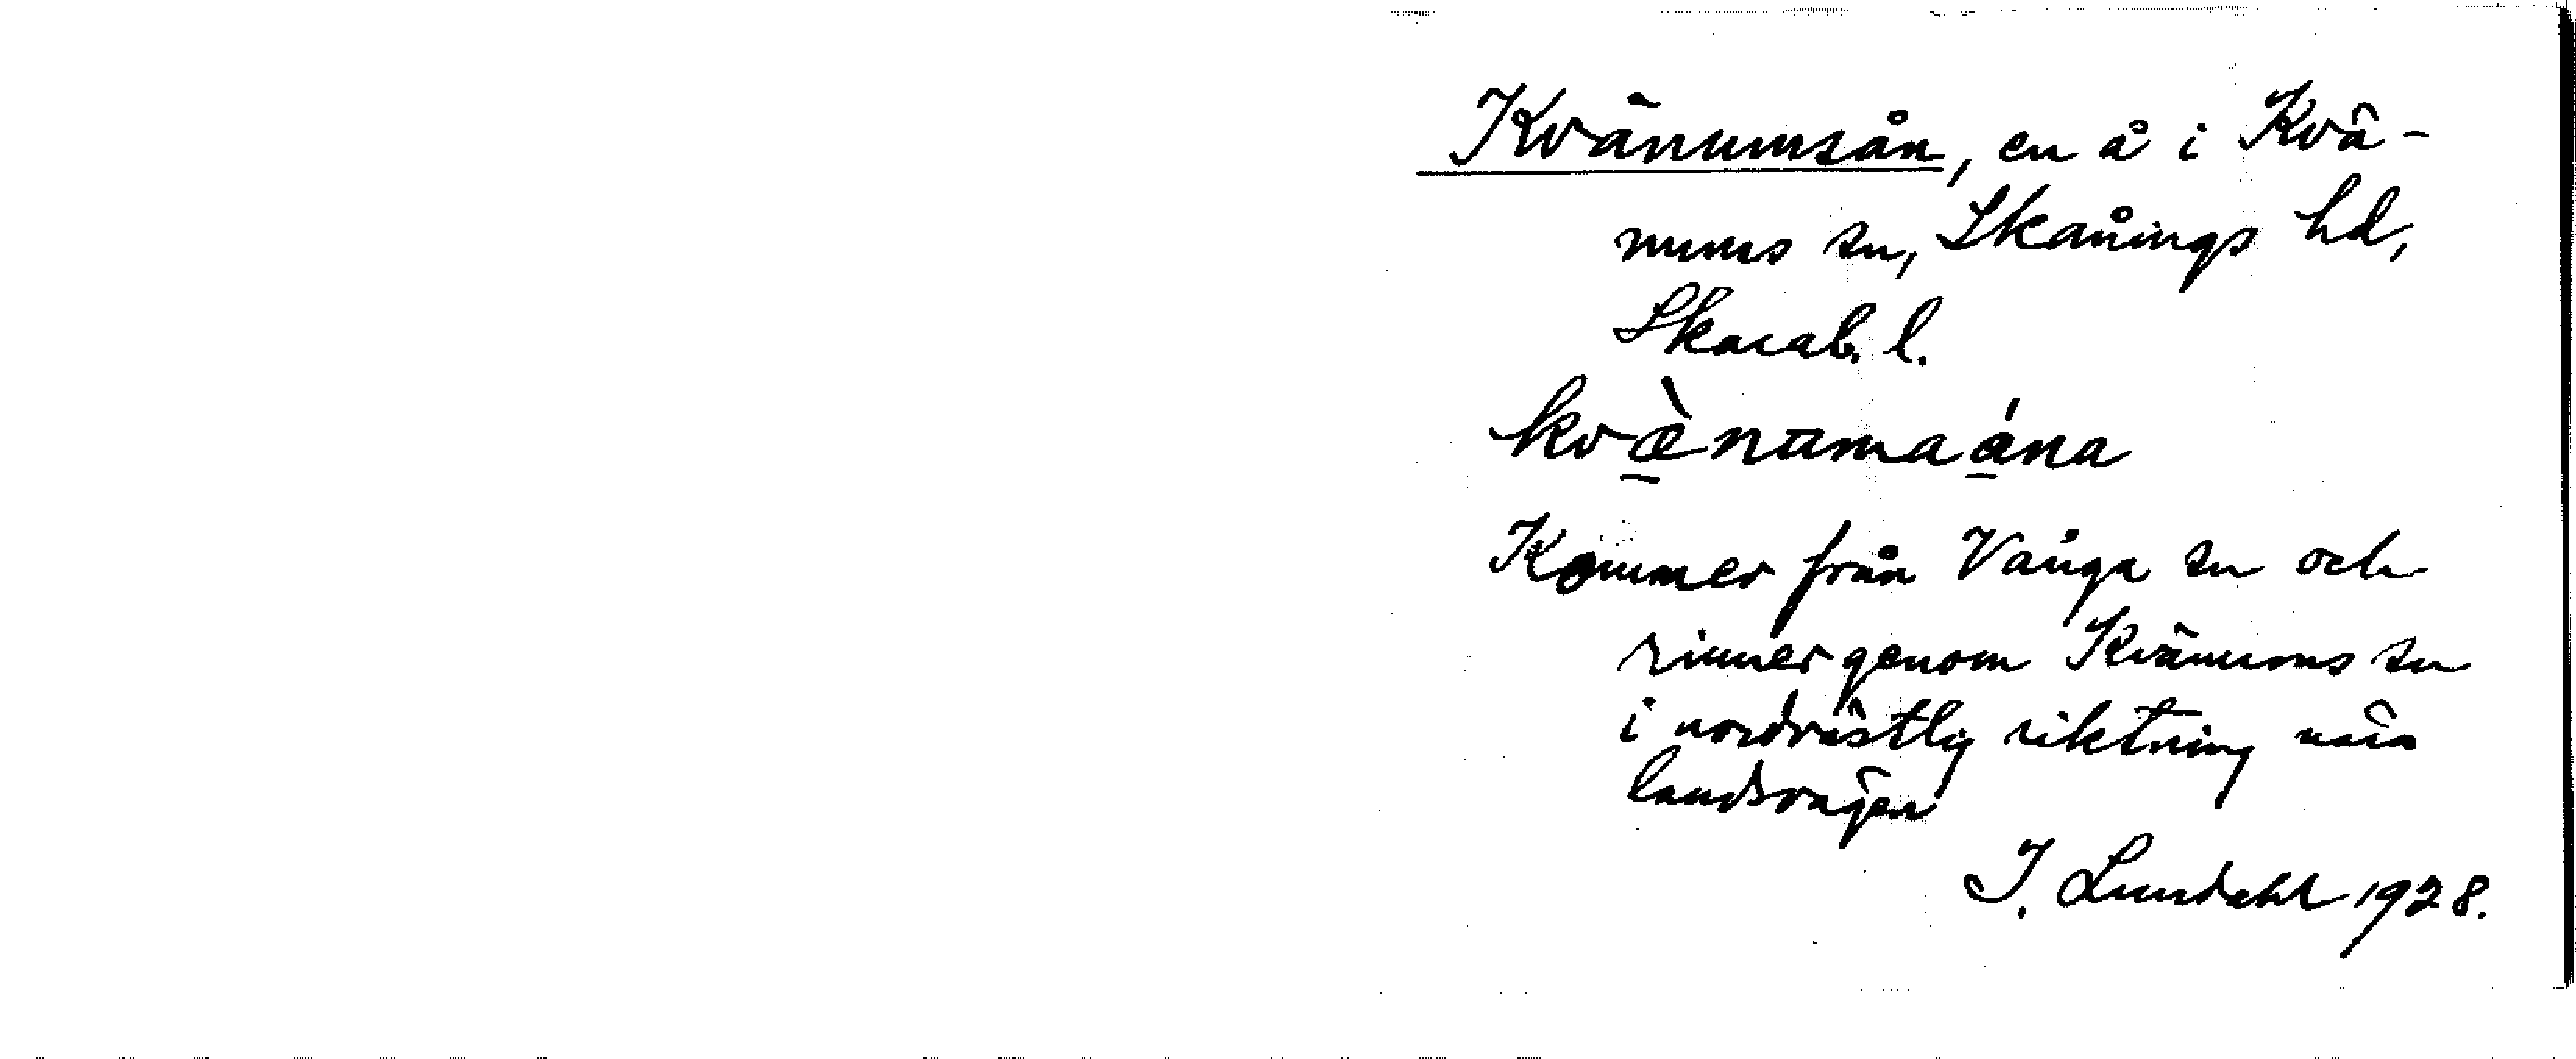 Kvänumsån, en å i Kvä-
nums sn, Skånings hd,
Skarab. l.
kvæ̀numaána
Kommer från Vånga sn och
rinner genom Kvänums sn
i nordvästlig riktning nära
landsvägen
I. Lundahl 1928.